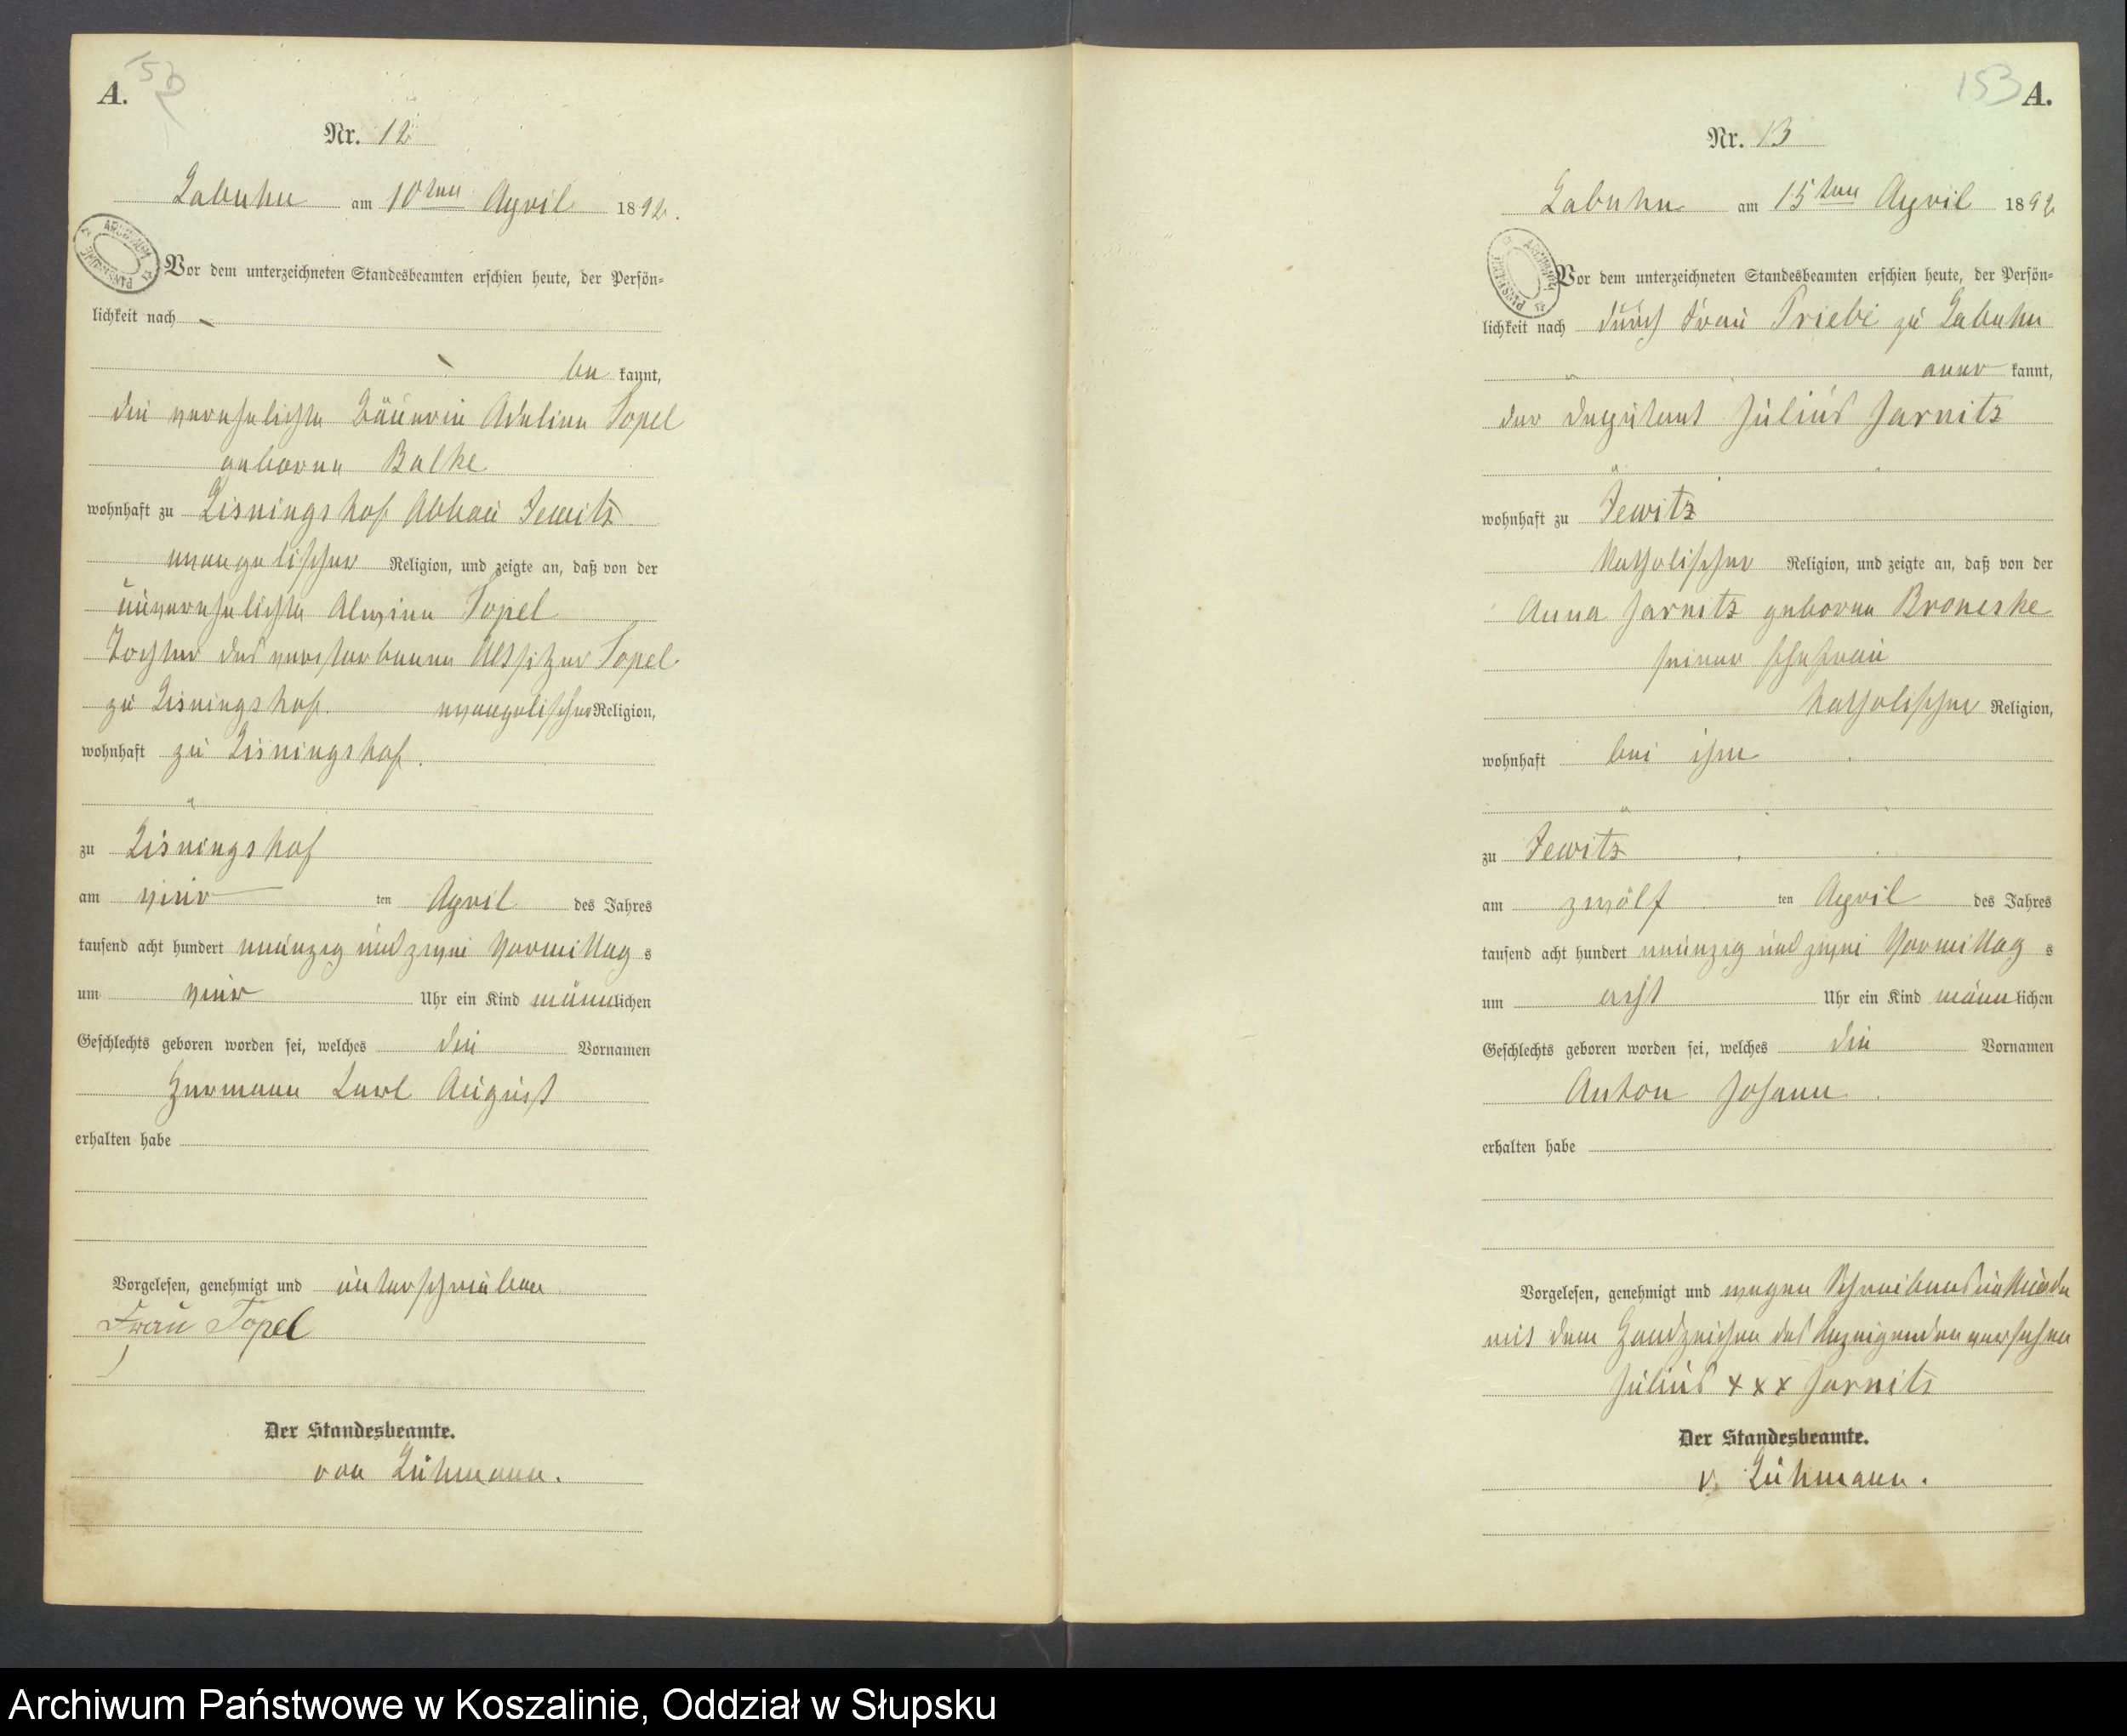 A.
Nr. 12
Labuhn am 10ten April 1892.
Vor dem unterzeichneten Standesbeamten erschien heute, der Persön-
lichkeit nach
be kannt,
die verehelichte Bäuerin Adeline Topel
geborene Balke
wohnhaft zu Lisningshof Abbau Jewitz
evangelischer Religion, und zeigte an, daß von der
unverehelichte Alwine Topel
Tochter des verstorbenen Topel
zu Lisningshof. evangelischer Religion,
wohnhaft zu Lisningshof.
zu Lisningshof
am vier ten April des Jahres
tausend acht hundert neunzig und zwei Vormittag s
um vier Uhr ein Kind männlichen
Geschlechts geboren worden sei, welches die Vornamen
Hermann Carl August
erhalten habe
Vorgelesen, genehmigt und unterschrieben
Frau Topel
Der Standesbeamte.
von Lühmann.
153 A.
Nr. 13
Labuhn am 15ten April 1892
Vor dem unterzeichneten Standesbeamten erschien heute, der Persön-
lichkeit nach durch Frau Priebe zu Labuhn
aner kannt,
der Deputant Julius Jarnitz
wohnhaft zu Jewitz
katholischer Religion, und zeigte an, daß von der
Anna Jarnitz geborene Broneske
seiner Ehefrau
katholischer Religion,
wohnhaft bei ihm
zu Jewitz
am zwölf ten April des Jahres
tausend acht hundert neunzig und zwei Vormittag s
um acht Uhr ein Kind männlichen
Geschlechts geboren worden sei, welches die Vornamen
Anton Johann.
erhalten habe
Vorgelesen, genehmigt und wegen Schreibensunkunde
mit dem Handzeichen des Anzeigenden versehen
Julius x x x Jarnitz
Der Standesbeamte.
v. Lühmann.
Archiwum Państwowe w Koszalinie, Oddział w Słupsku